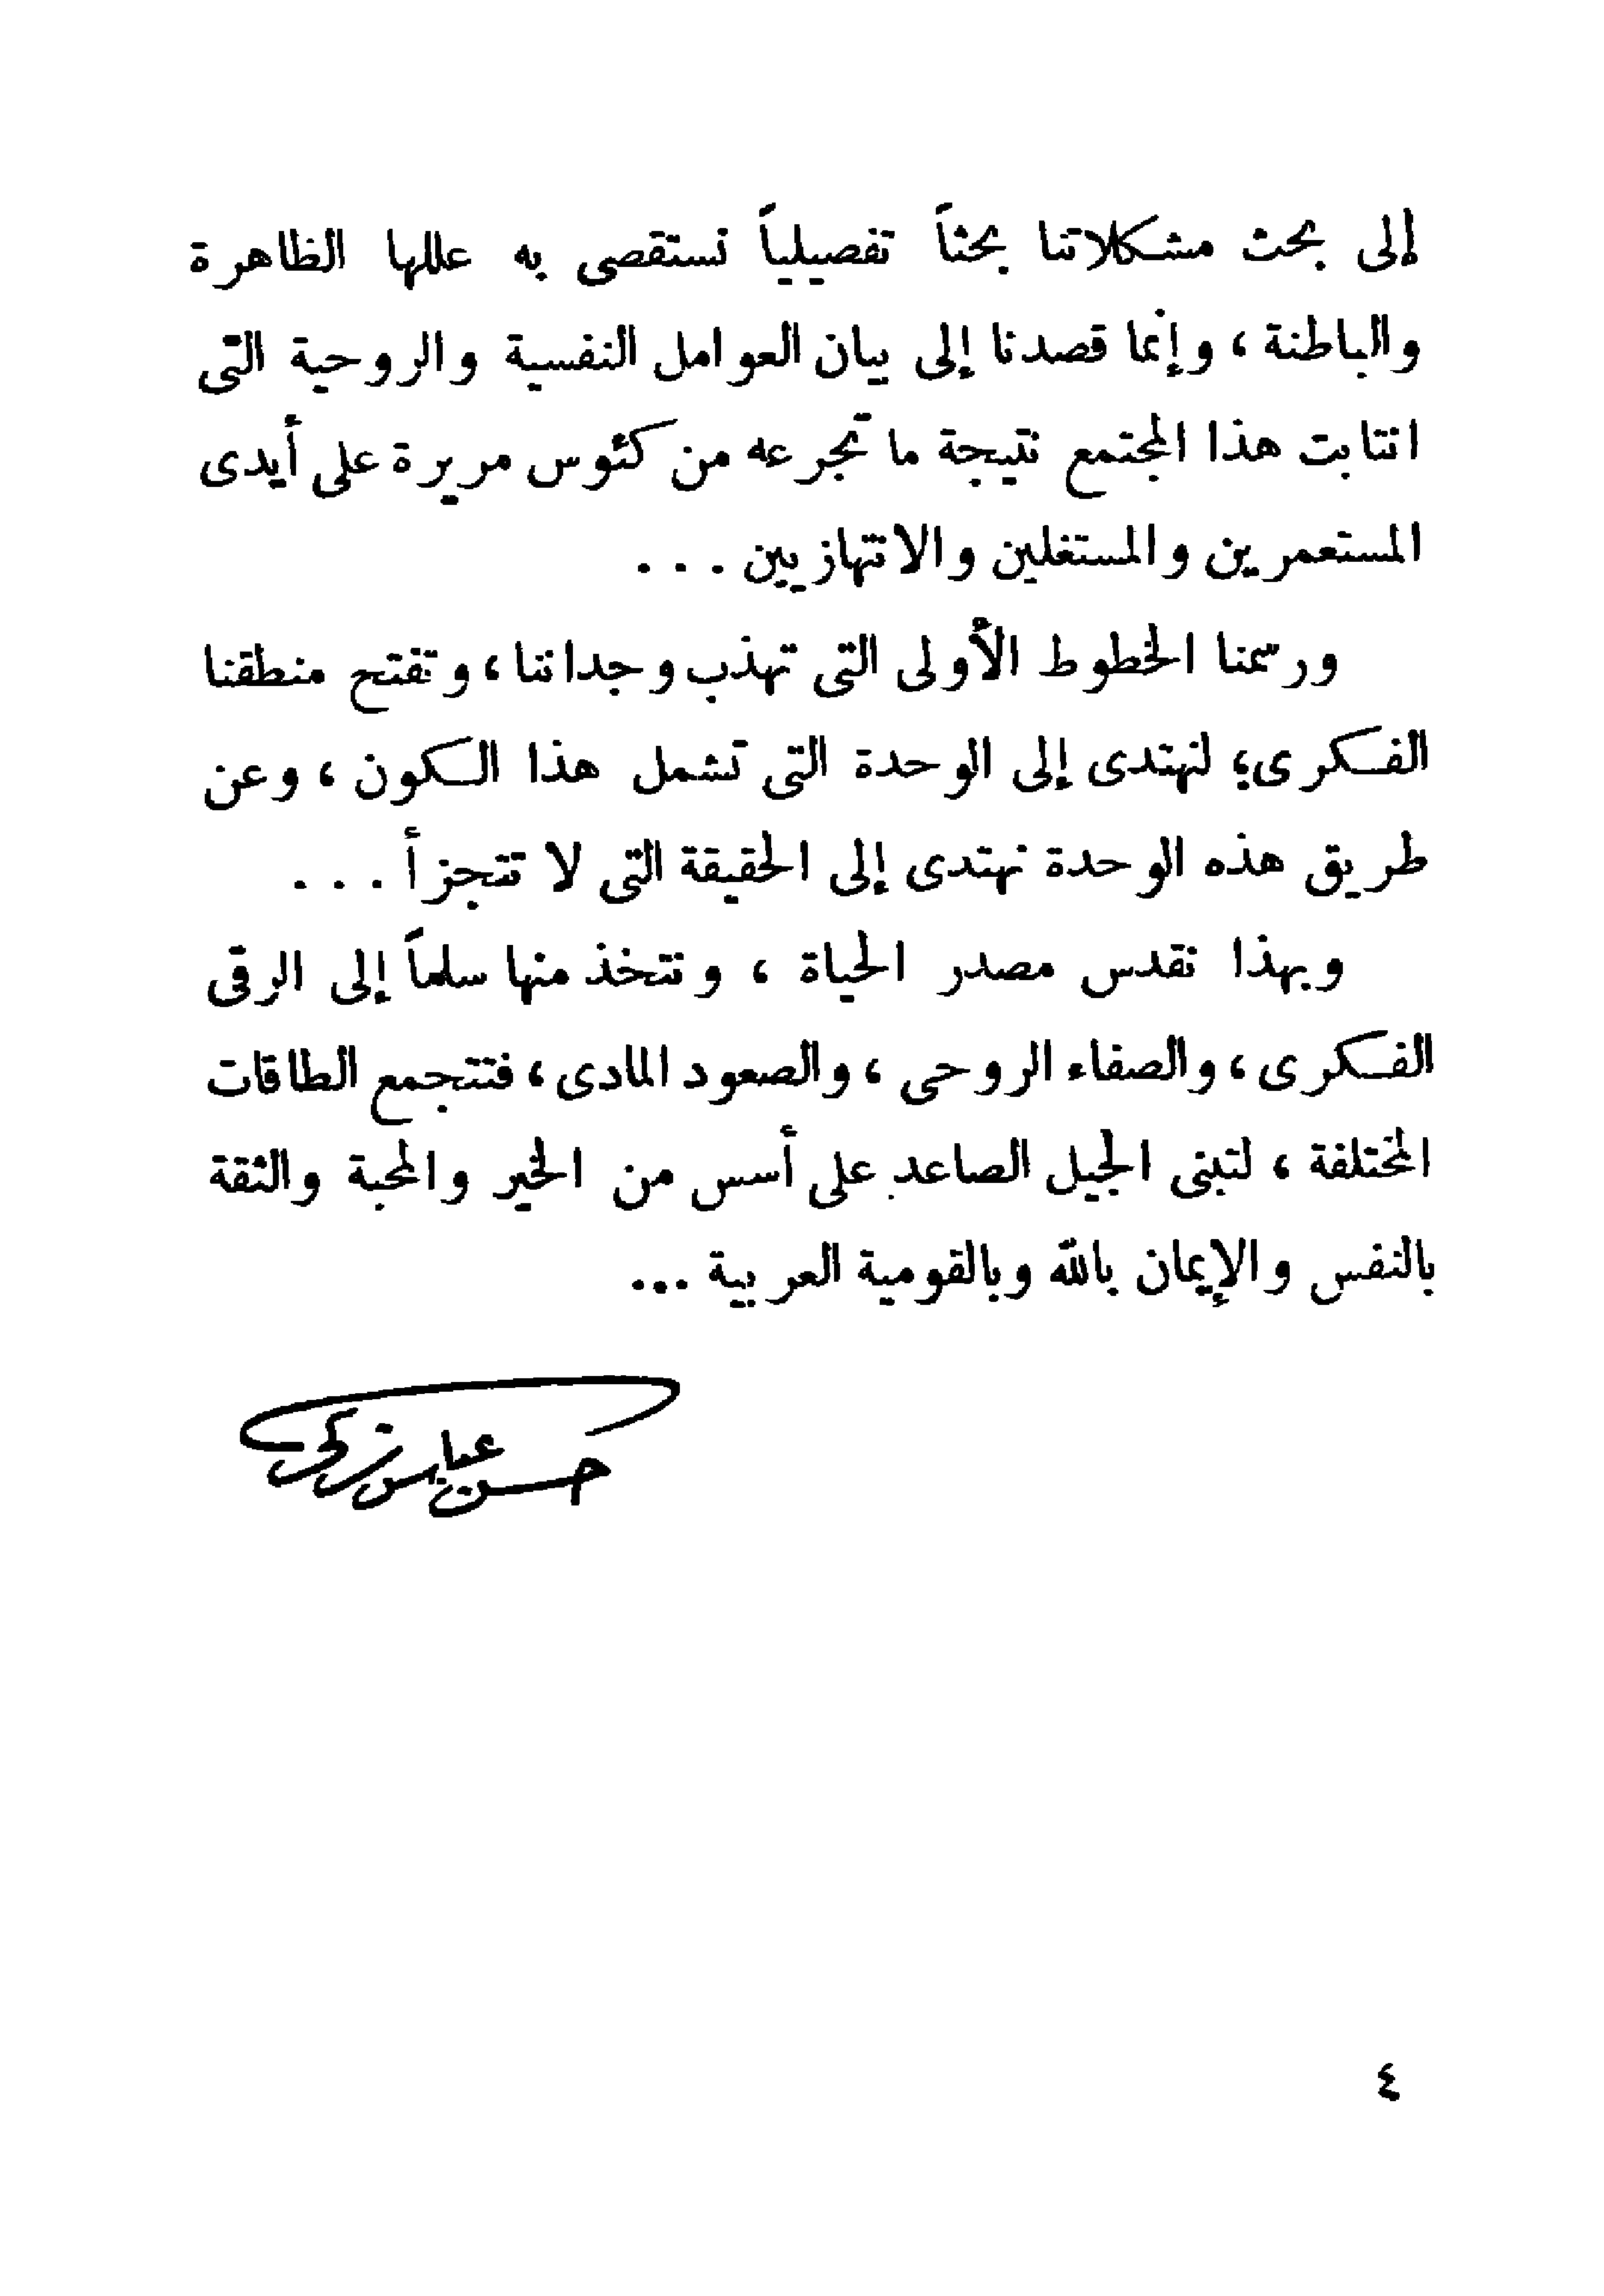 إلى بحث مشكلاتنا بحثاً تفصيلياً نستقصى به عللها الظاهرة
والباطنة ، وإنما قصدنا إلى بيان العوامل النفسية والروحية التى
انتابت هذا المجتمع نتيجة ما تجرعه من كئوس مريرة على أيدى
المستعمرين والمستغلين والانتهازيين . . .
ورسمنا الخطوط الأولى التى تهذب وجداننا ، وتفتح منطقنا
الفكرى ؛ لنهتدى إلى الوحدة التى تشمل هذا الكون ، وعن
طريق هذه الوحدة نهتدى إلى الحقيقة التى لا تتجزأ . . .
وبهذا نقدس مصدر الحياة ، ونتخذ منها سلماً إلى الرقى
الفكرى ، والصفاء الروحى ، والصعود المادى ، فتتجمع الطاقات
المختلفة ، لتبنى الجيل الصاعد على أسس من الخير والمحبة والثقة
بالنفس والإيمان بالله وبالقومية العربية ...
حسن عباس زكى
٤